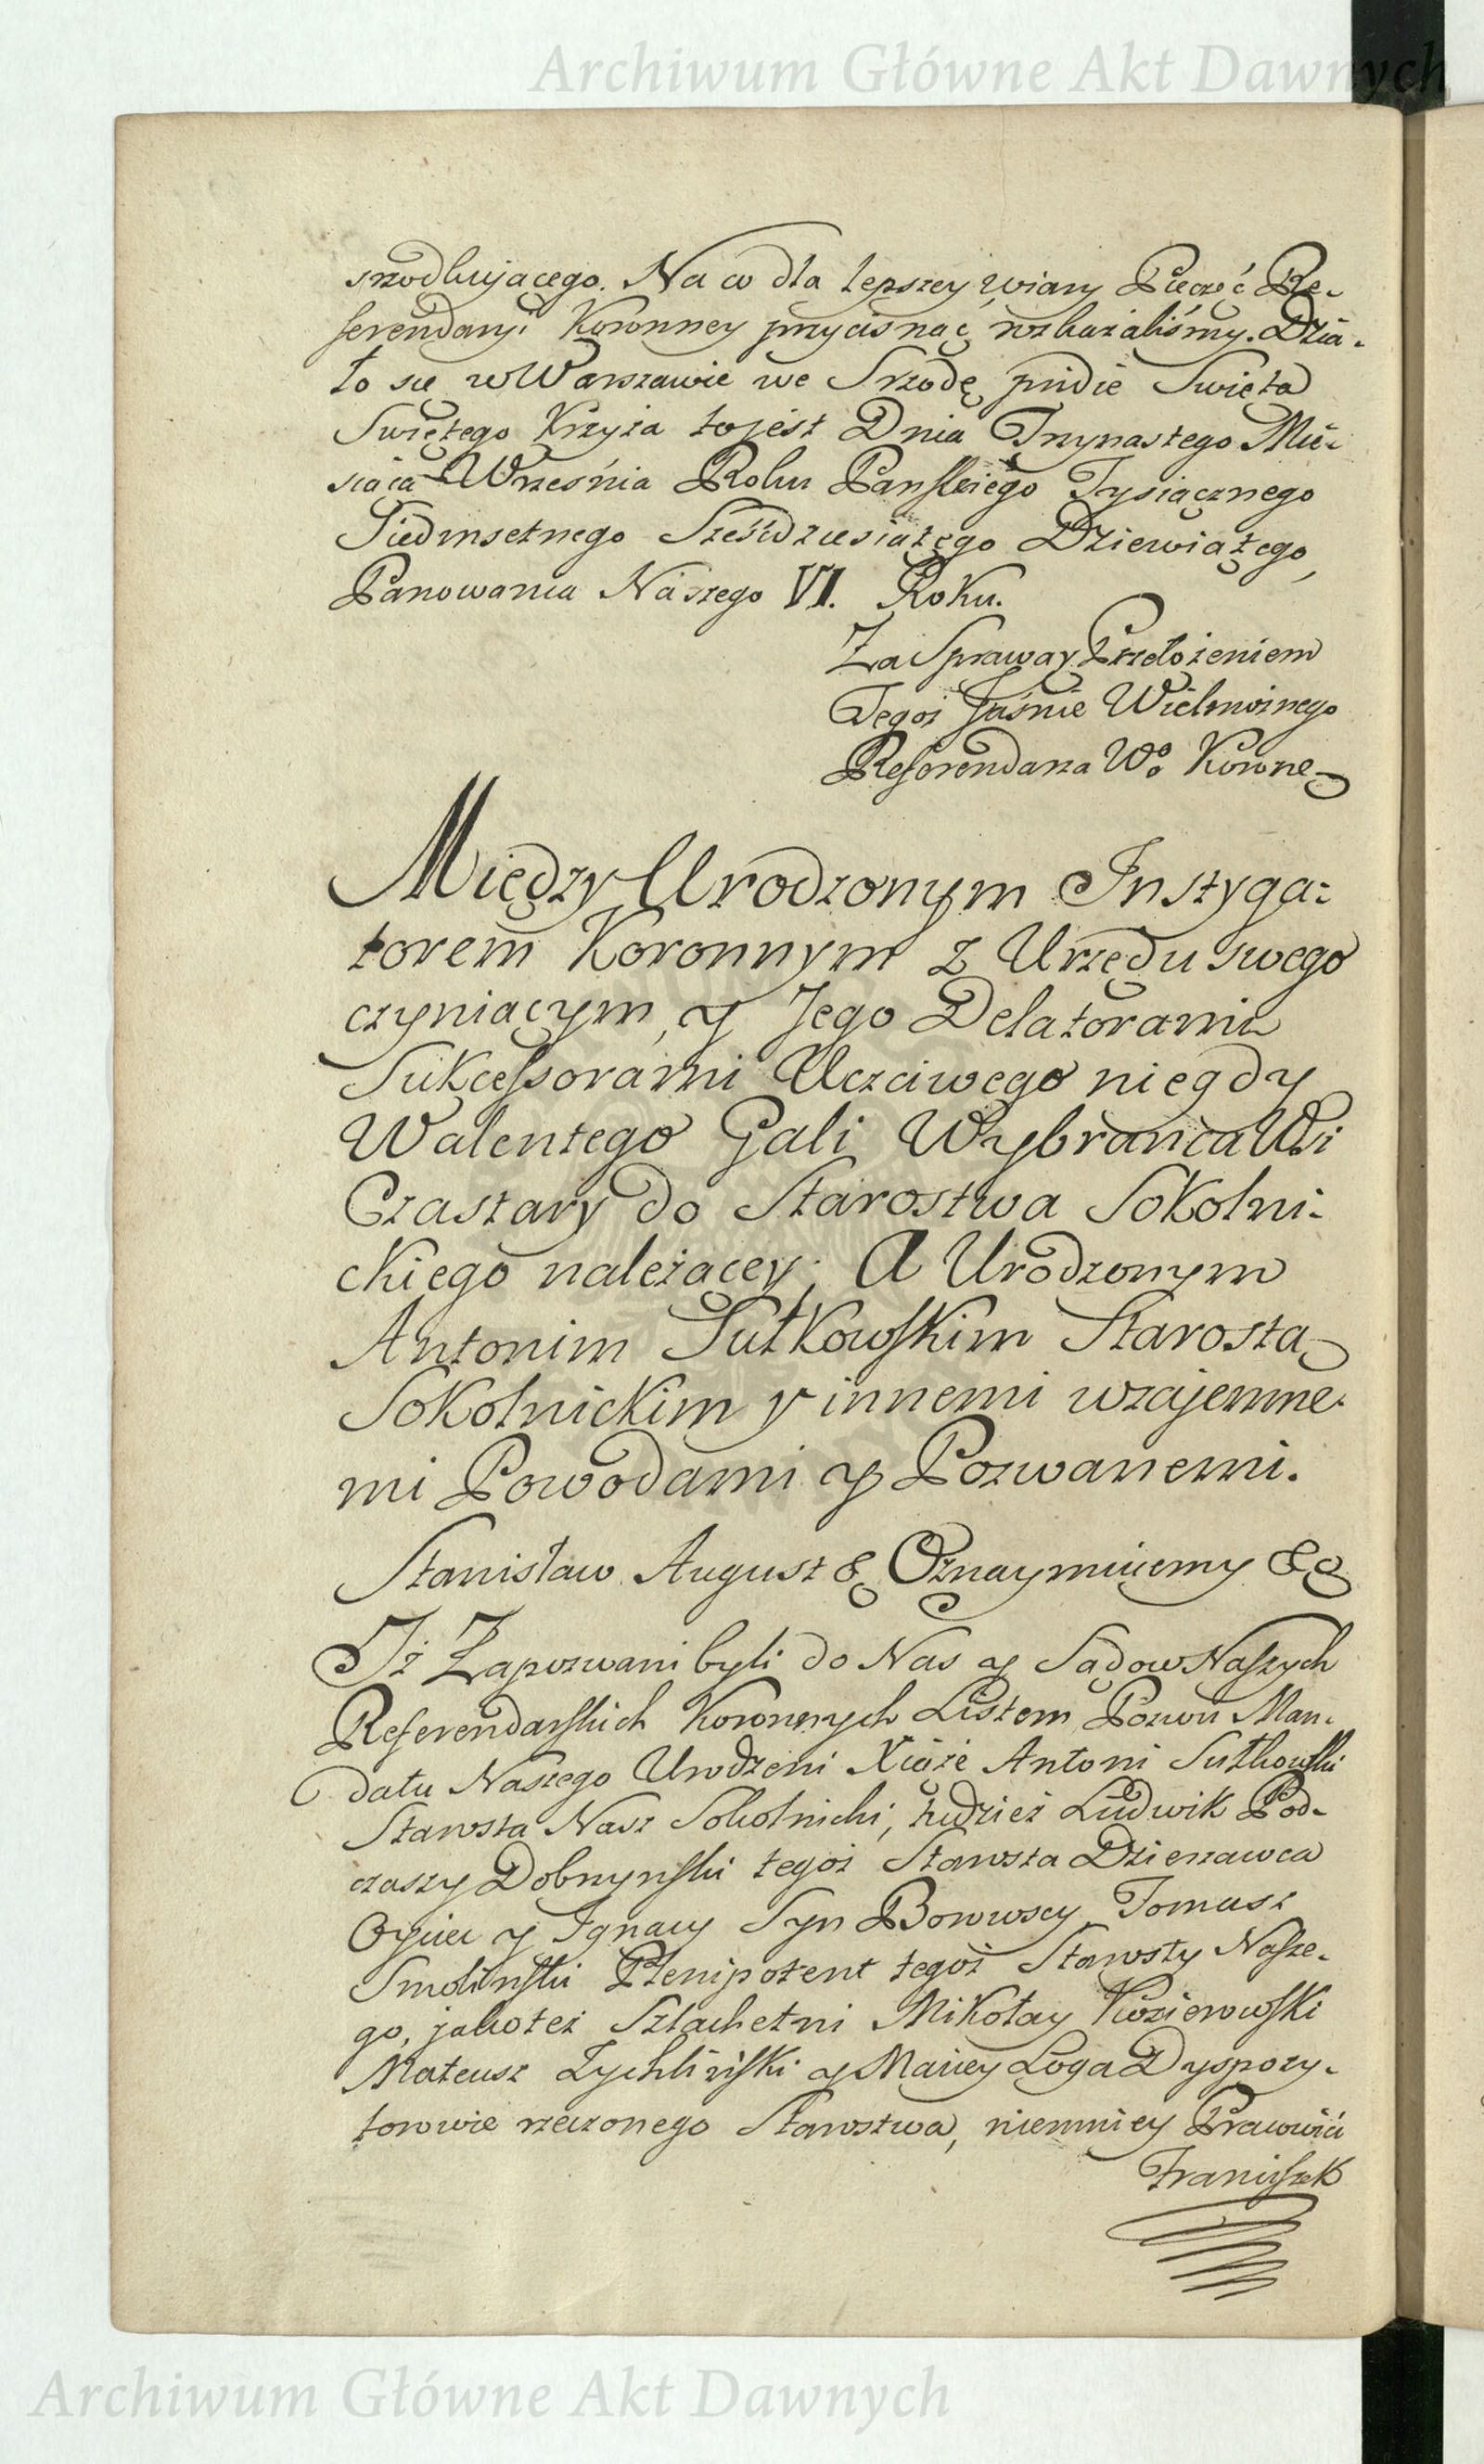 Archiwum Główne Akt Dawnych
srzodkującego. Na co dla lepszey wiary Pieczęć Re-
ferendaryi Koronney przycisnąć rozkazaliśmy. Dzia-
ło się w Warszawie we Srzodę pridie Swięta
Swiętego Krzyża to jest Dnia Trzynastego Mie-
siąca Września Roku Panskiego Tysiącznego
Siedmsetnego Sześćdziesiątego Dziewiątego,
Panowania Naszego VI. Roku.
Za Sprawą y Przełożeniem
Tegoż Jaśnie Wielmożnego
Referendarza Wo Koronne
Między Urodzonym Instyga-
torem Koronnym z Urzędu swego
czyniącym, y Jego Delatorami
Sukcessorami Uczciwego niegdy
Walentego Gali Wybranca Wsi
Czastary do Starostwa Sokolni-
ckiego należącey; A Urodzonym
Antonim Sułkowskim Starostą
Sokolnickim y innemi wzajemne-
mi Powodami y Pozwanemi.
Stanisław August & Oznaymuiemy &&
Iż Zapozwani byli do Nas y Sądow Naszych
Referendarskich Koronnych Listem Pozwu Man-
datu Naszego Urodzeni Xiąże Antoni Sułkowski
Starosta Nasz Sokolnicki, tudzież Ludwik Pod-
czaszy Dobrzynski tegoż Starosta Dzierzawca
Oyciec y Ignacy Syn Borowscy, Tomasz
Smolinski Plenipotent tegoż Starosty Nasze-
go, jakoteż Szlachetni Mikołay Kozierowski
Mateusz Zychliński y Maciey Loga Dyspozy-
torowie rzeczonego Starostwa, niemniey Pracowici
Franiszek
Archiwum Główne Akt Dawnych